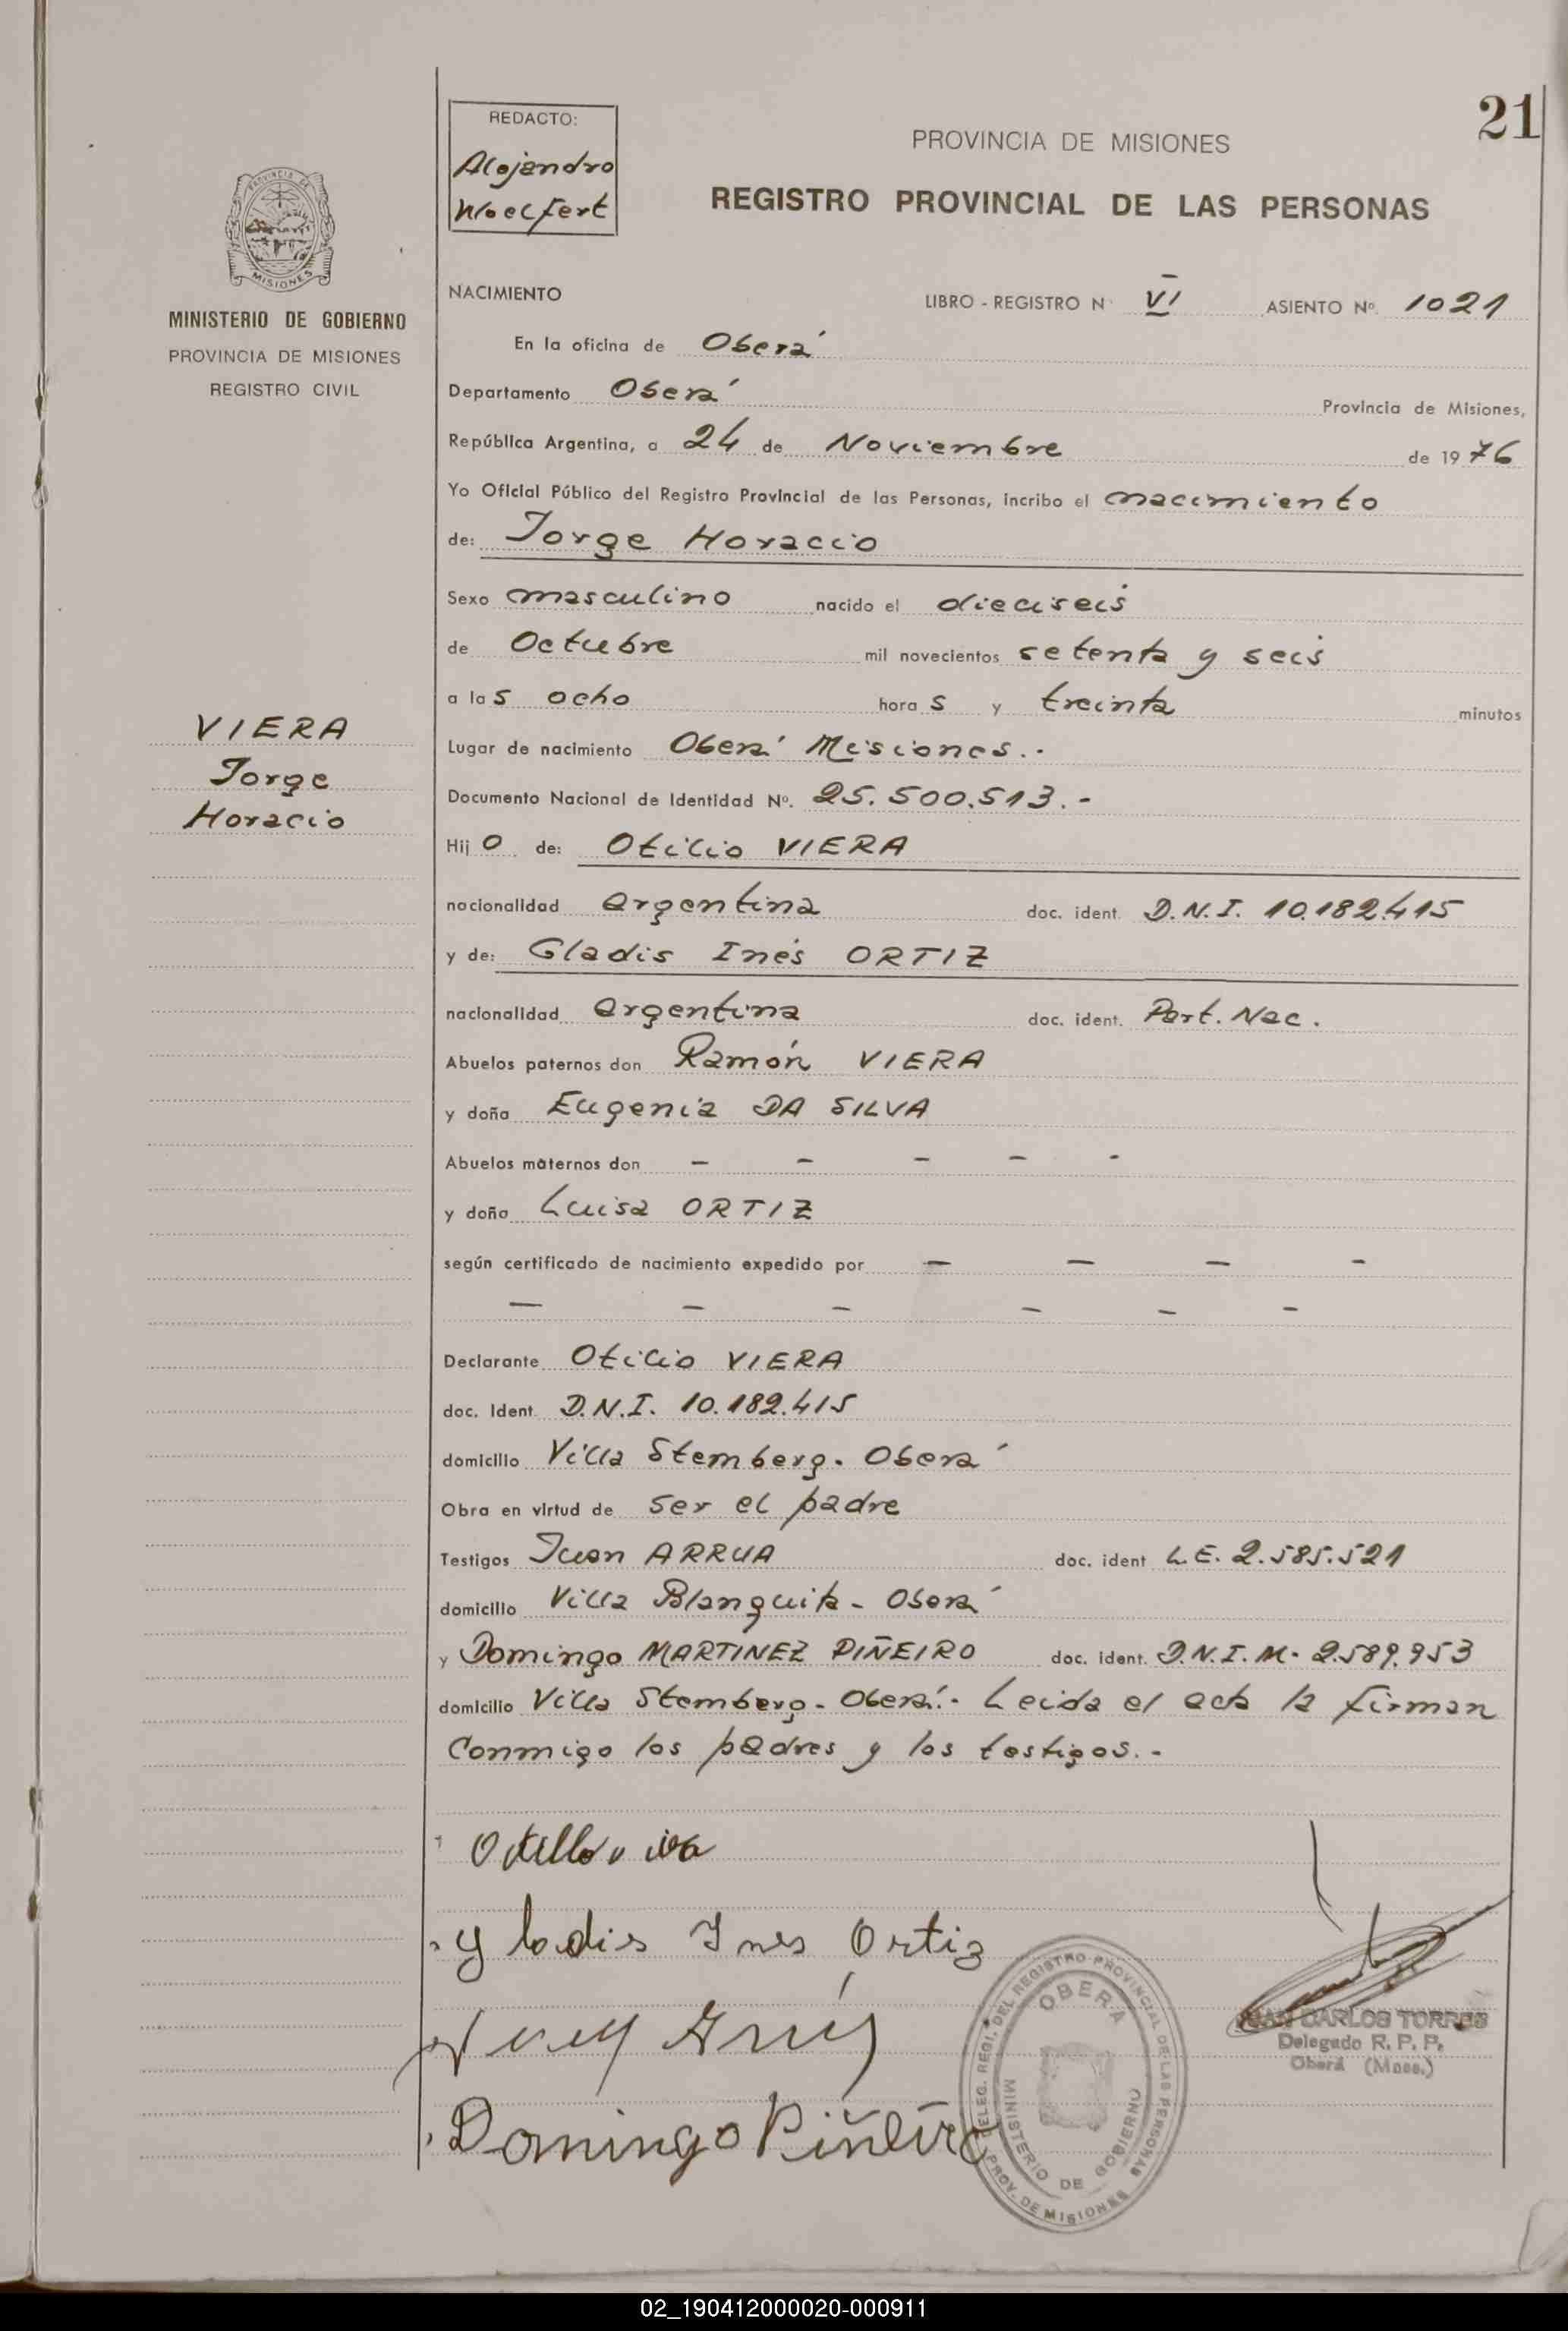 21
REDACTO:
Alejandro
Woelfert
PROVINCIA DE MISIONES
REGISTRO PROVINCIAL DE LAS PERSONAS
PROVINCIA DE
MISIONES
MINISTERIO DE GOBIERNO
PROVINCIA DE MISIONES
REGISTRO CIVIL
NACIMIENTO LIBRO - REGISTRO N° VI ASIENTO Nº. 1021
En la oficina de Oberá
Departamento Oberá Provincia de Misiones,
República Argentina, a 24 de Noviembre de 1976
Yo Oficial Público del Registro Provincial de las Personas, incribo el nacimiento
de: Jorge Horacio
Sexo masculino nacido el dieciseis
de Octubre mil novecientos setenta y seis
a las ocho horas y treinta minutos
Lugar de nacimiento Oberá Misiones.-
Documento Nacional de Identidad Nº. 25.500.513.-
Hijo de: Otilio VIERA
nacionalidad argentina doc. ident. D.N.I. 10.182.415
y de: Gladis Inés ORTIZ
nacionalidad argentina doc. ident. Part. Nac.
Abuelos paternos don Ramón VIERA
y doña Eugenia DA SILVA
Abuelos maternos don - - - - -
y doña Luisa ORTIZ
según certificado de nacimiento expedido por - - - -
- - - - - -
Declarante Otilio VIERA
doc. Ident. D.N.I. 10.182.415
domicilio Villa Stemberg. Oberá
Obra en virtud de ser el padre
Testigos Juan ARRUA doc. ident L.E. 2.585.521
domicilio Villa Blanquita - Oberá
y Domingo MARTINEZ PIÑEIRO doc. ident. D.N.I.M. 2.589.953
domicilio Villa Stemberg - Oberá.- Leida el acta la firman
Conmigo los padres y los testigos.-
VIERA
Jorge
Horacio
Gladis Ines Ortiz
Domingo Piñeiro
DELEG. REGI. DEL REGISTRO PROVINCIAL DE LAS PERSONAS
OBERA
MINISTERIO DE GOBIERNO
PROV. DE MISIONES
JUAN CARLOS TORRES
Delegado R. P. P.
Oberá (Mnes.)
02_190412000020-000911